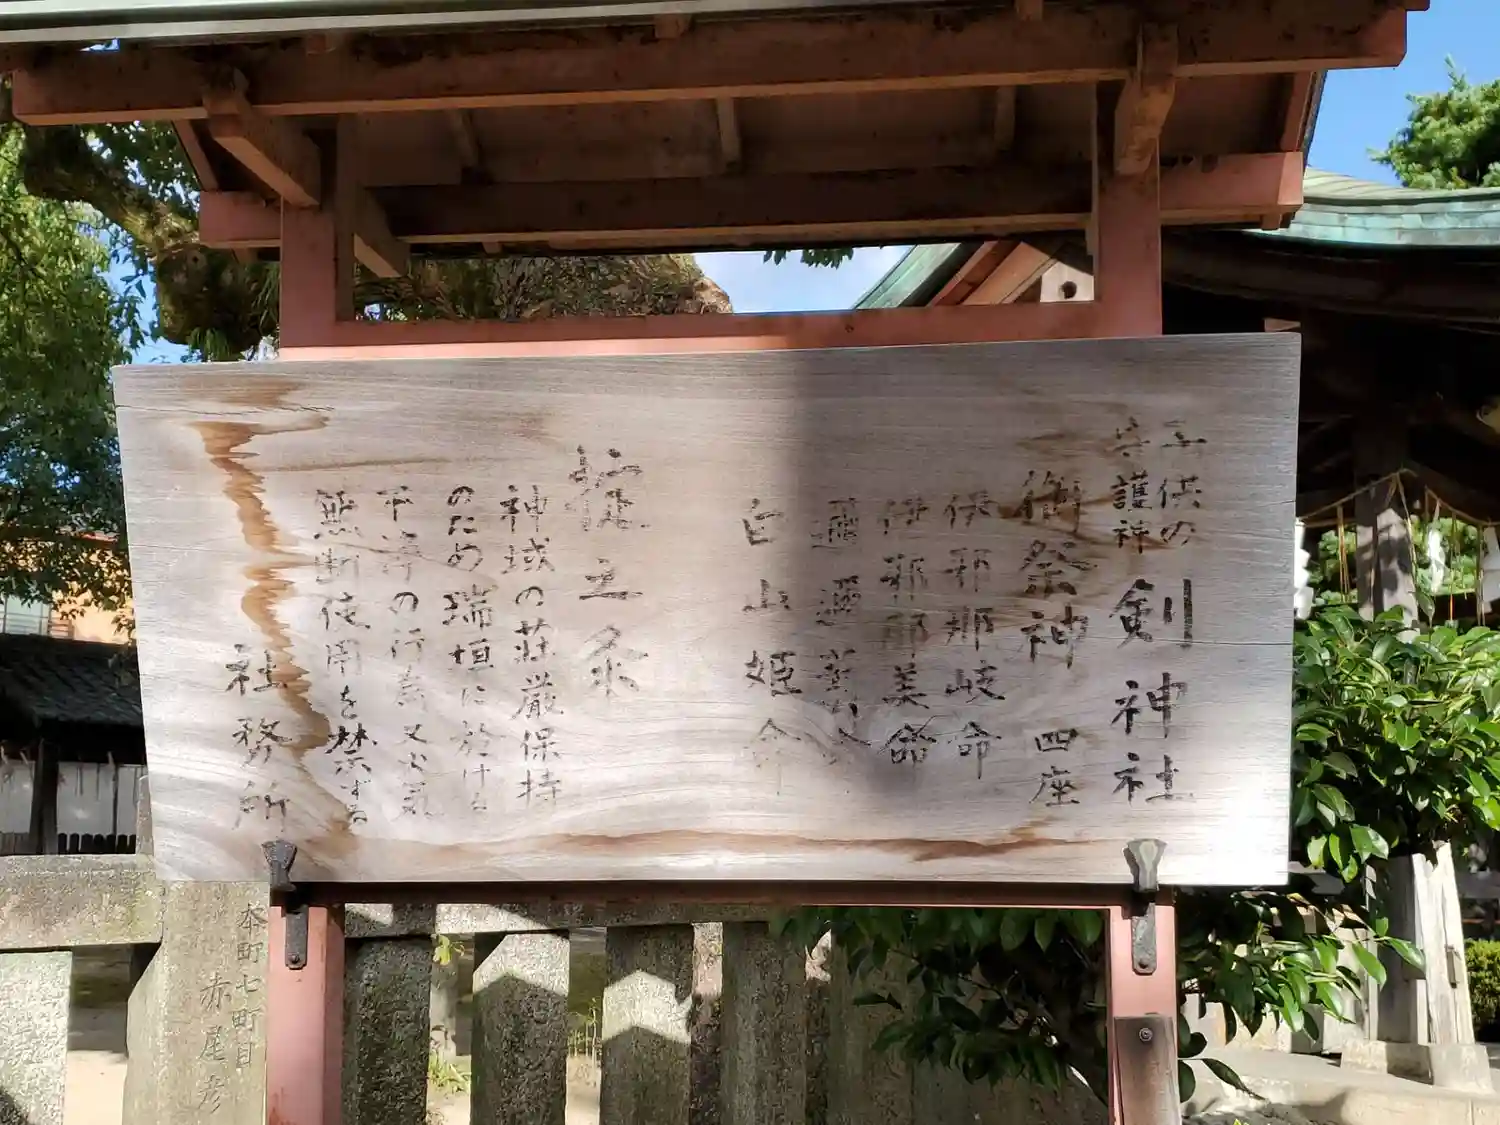 子供の
守護神
剣神社
御祭神 四座
伊邪那岐命
伊邪那美命
白山姫命
掟之条
神域の荘厳保持
のため瑞垣に於ける
不浄の行為又火気
無断使用を禁ずる
社務所
本町七町目
赤尾彦